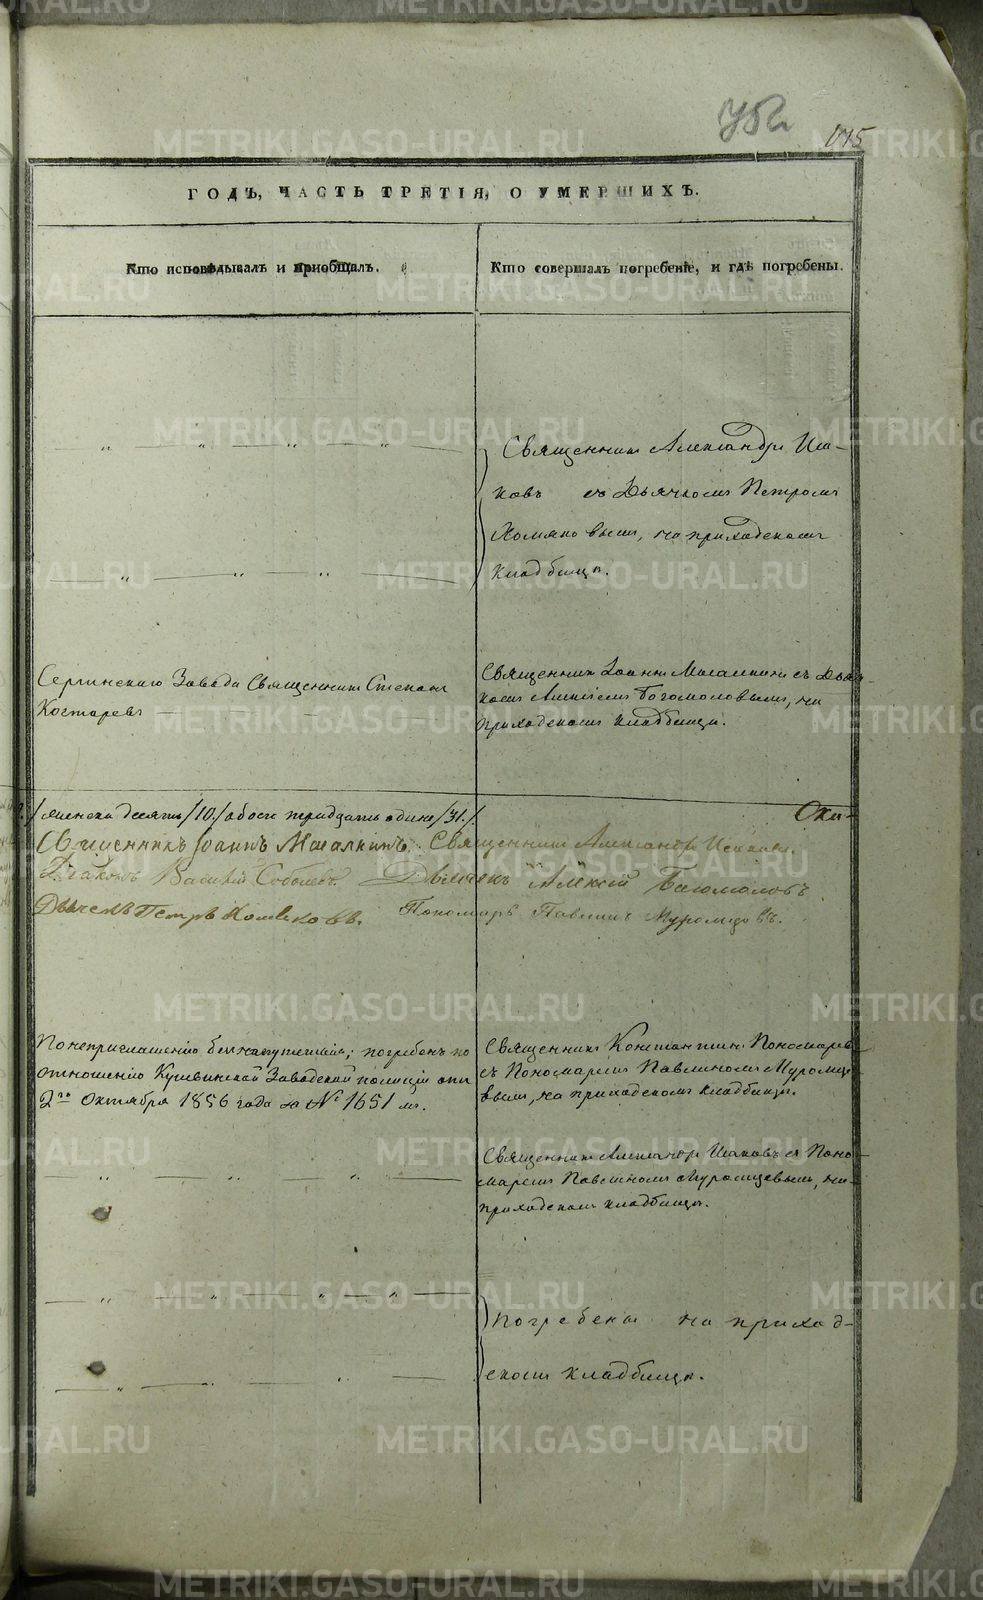 752
ГОДЪ, ЧАСТЬ ТРЕТІЯ, О УМЕРШИХЪ.
Кто исповѣдывалъ и приобщалъ.
Кто совершалъ погребеніе, и гдѣ погребены.
Священникъ Александръ Иса-
ковъ съ Дьячкомъ Петромъ
Хомяковымъ, на приходскомъ
кладбищѣ.
Сергинскаго Завода Священникъ Стефанъ
Костаревъ
Священникъ Іоаннъ Магалкинъ съ Дьяч-
комъ Алексіемъ Богомоловымъ, на
приходскомъ кладбищѣ.
женска десять /10./ обоего тридцать одинъ /31./
Священникъ Іоаннъ Магалкинъ. Священникъ Александръ Исаковъ.
Діаконъ Василій Соболевъ. Дьячекъ Алексій Богомоловъ
Дьячекъ Петръ Хомяковъ. Пономарь Павлинъ Муромцовъ.
По неприглашенію безъ напутствія; погребенъ по
отношенію Кушвинской Заводской полиціи отъ
2го Октября 1856 года за № 1651 м.
Священникъ Константинъ Пономаревъ
съ Пономаремъ Павлиномъ Муромце-
вымъ, на приходскомъ кладбищѣ.
Священникъ Александръ Исаковъ съ Поно-
маремъ Павлиномъ Муромцевымъ, на
приходскомъ кладбищѣ.
Погребены на приход-
скомъ кладбищѣ.
METRIKI.GASO-URAL.RU